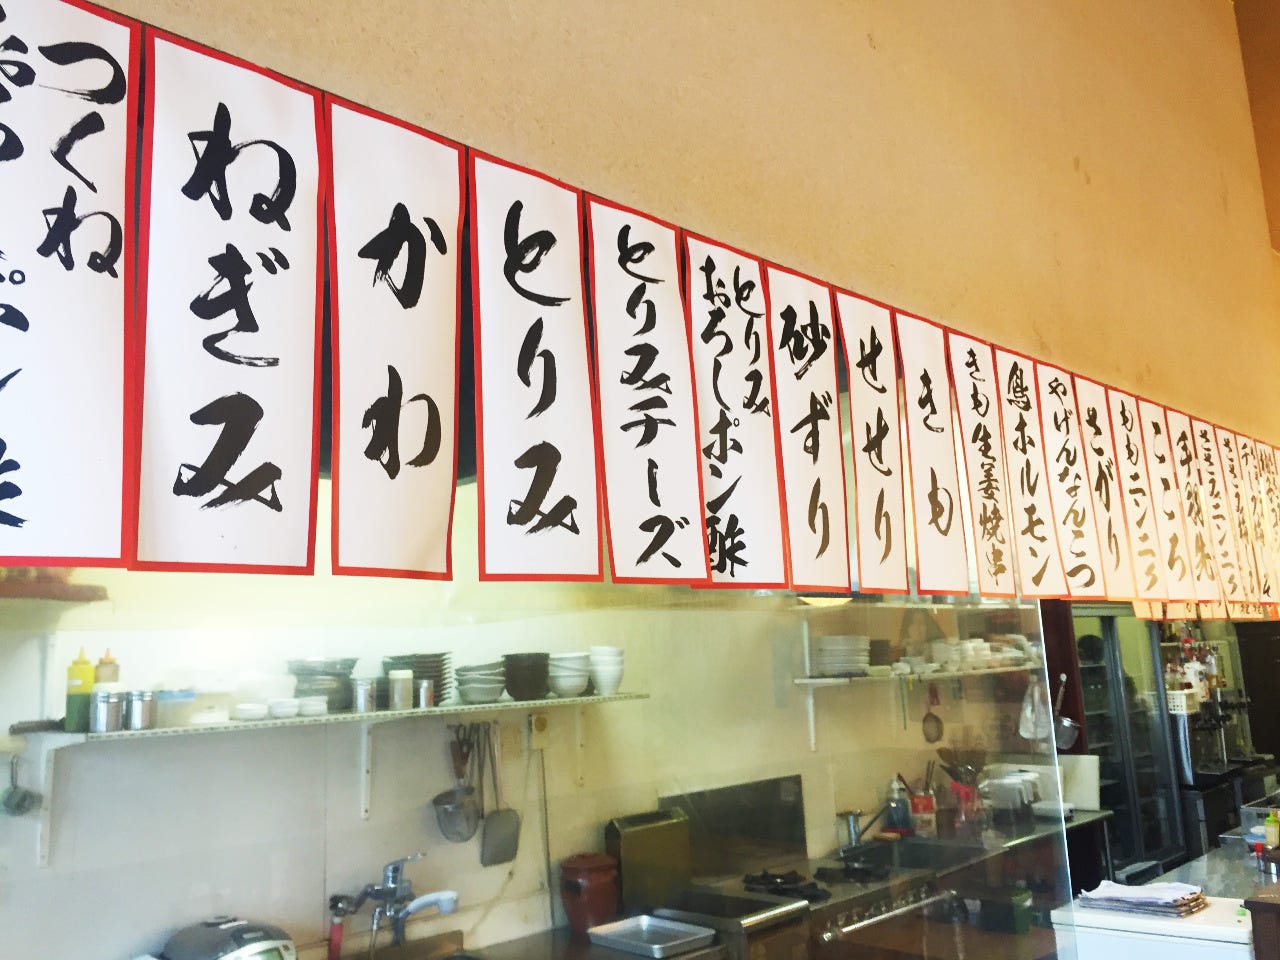 つくね
ポン酢
ねぎみ
かわ
とりみ
とりみチーズ
とりみ
おろしポン酢
砂ずり
せせり
きも
きも生姜焼串
鳥ホルモン
やげんなんこつ
さがり
ももニンニク
こころ
手羽先
ささみニンニク